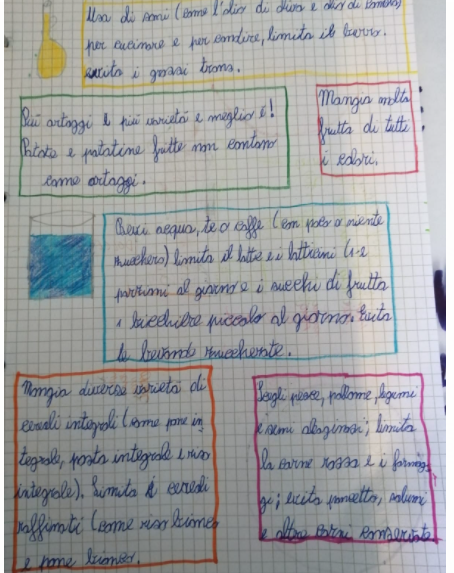 Usa oli sani (come l'olio di oliva e olio di
per cucinare e per condire, limita il burro.
evita i grassi trans.
Più ortaggi e più varietà e meglio è!
Patate e patatine fritte non contano
come ortaggi.
Mangia molta
frutta di tutti
i colori.
Bevi acqua, te o caffe (con poco o niente
zucchero) limita il latte e i latticini (1-2
porzioni al giorno e i succhi di frutta
1 bicchiere piccolo al giorno. Evita
le bevande zuccherate.
Mangia diverse varietà di
cereali integrali (come pane in
tegrale, pasta integrale e riso
integrale). Limita i cereali
raffinati (come riso bianco
e pane bianco).
Scegli pesce, pollame, legumi
e semi oleaginosi; limita
la carne rossa e i formag
gi; evita pancetta, salumi
e altre carni conservate